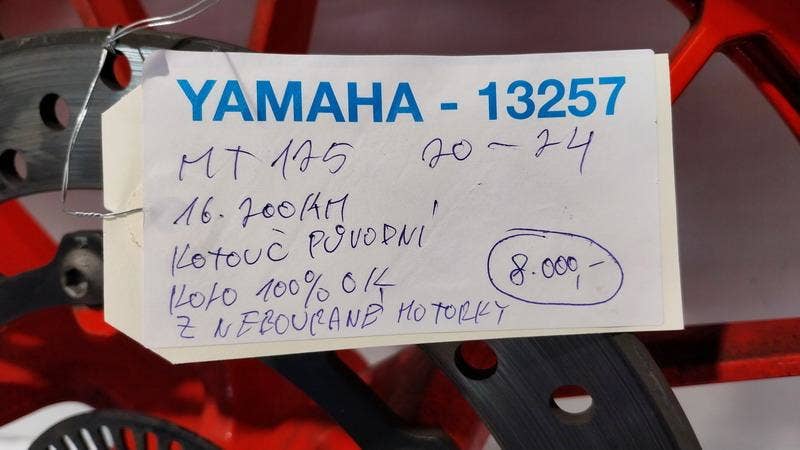 YAMAHA - 13257
MT 125 20-24
16.200KM
KOTOUČ PŮVODNÍ
KOLO 100% OK
8.000,-
Z NEBOURANÉ MOTORKY